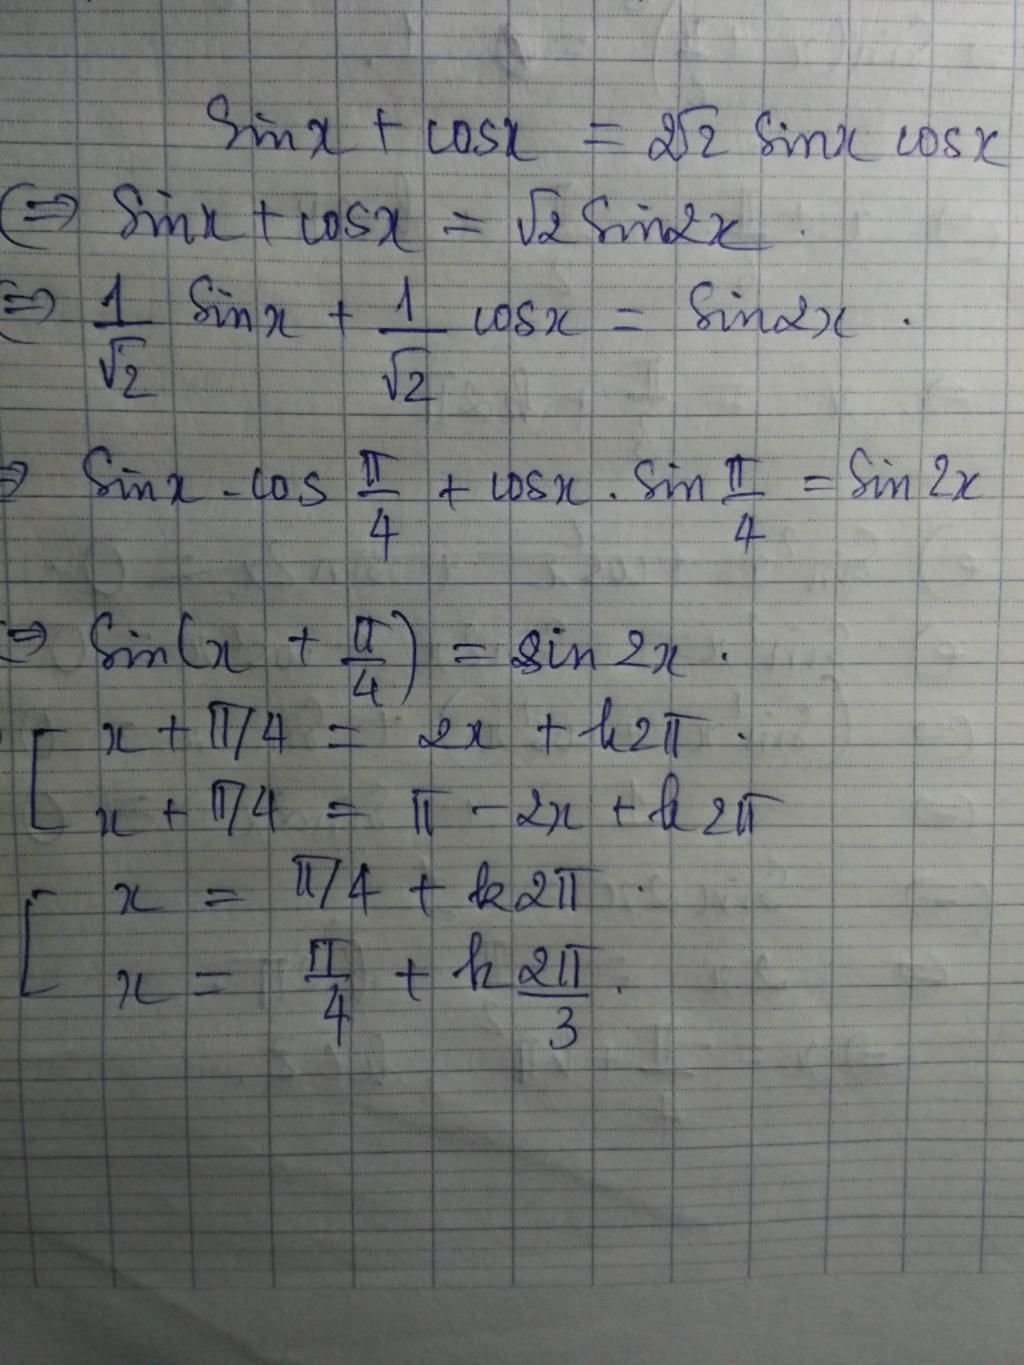 Sinx + cosx = 2√2 sinx cosx
(⇒ Sinx + cosx = √2 Sin2x .
⇒ 1/√2 Sinx + 1/√2 cosx = Sin2x .
⇒ Sinx . cos π/4 + cosx . Sin π/4 = Sin 2x
⇒ Sin(x + π/4) = sin 2x .
[ x + π/4 = 2x + k2π .
x + π/4 = π - 2x + k2π
[ x = π/4 + k2π .
x = π/4 + k 2π/3 .